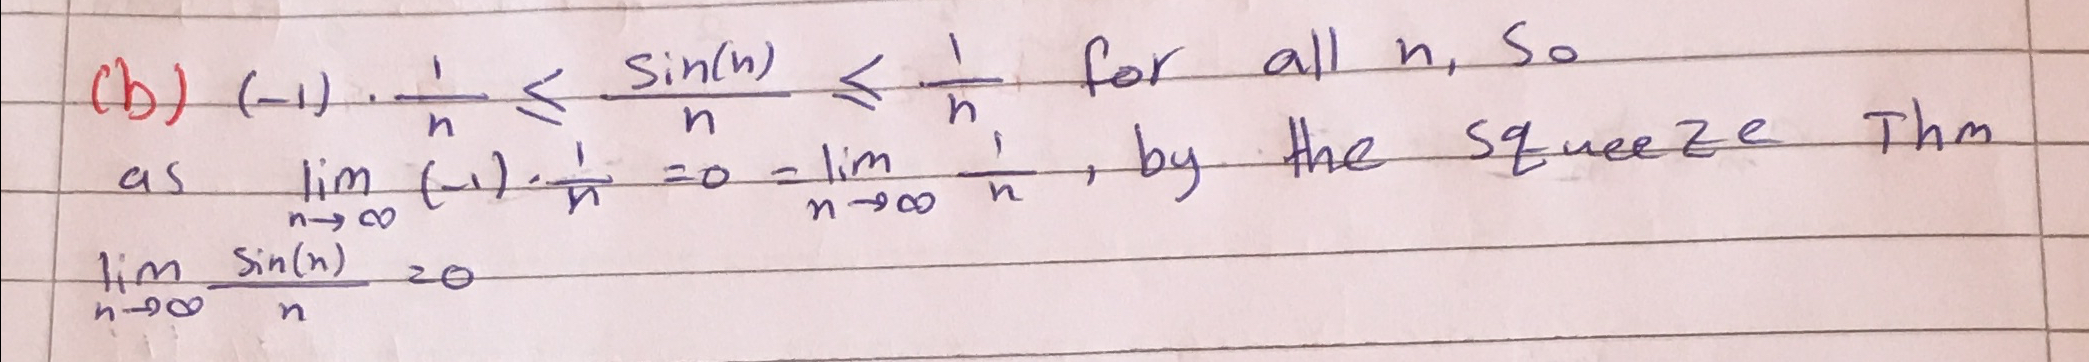 (b) (-1) · 1/n ≤ sin(n)/n ≤ 1/n for all n, So
as lim n→∞ (-1) · 1/n = 0 = lim n→∞ 1/n, by the squeeze Thm
lim n→∞ sin(n)/n = 0